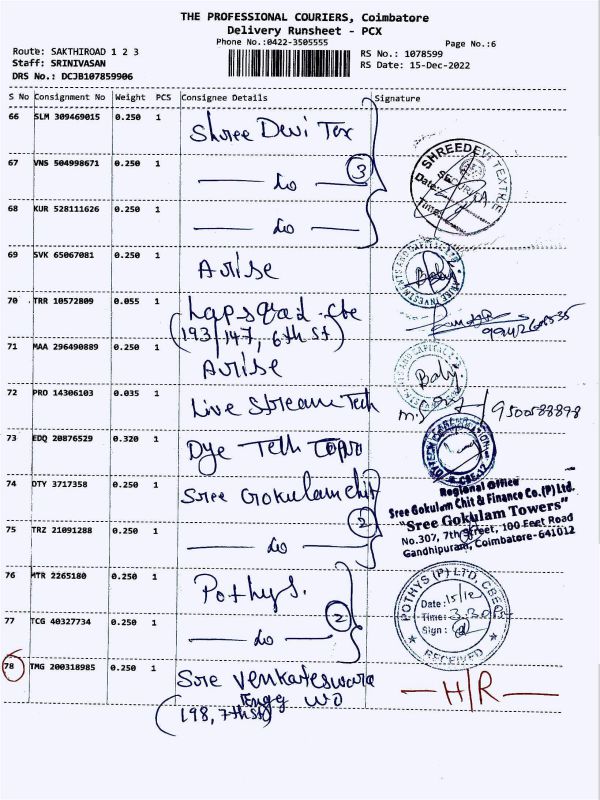 THE PROFESSIONAL COURIERS, Coimbatore
Delivery Runsheet - PCX
Phone No.:0422-3505555
Page No.:6
Route: SAKTHIROAD 1 2 3
Staff: SRINIVASAN
DRS No.: DCJB107859906
RS No.: 1078599
RS Date: 15-Dec-2022
S No Consignment No Weight PCS Consignee Details Signature
66 SLM 309469015 0.250 1 Shree Devi Tex
67 VNS 504998671 0.250 1 — do — 3
SHREEDEVI TEXTILE
SECURITY
Date:
Time:
68 KUR 528111626 0.250 1 — do —
69 SVK 65067081 0.250 1 Arise
Baby
ARISE INVESTMENTS AND CAPITAL LTD
70 TRR 10572809 0.055 1
(193/147, 6th St)
71 MAA 296490889 0.250 1 Arise
Baby
72 PRO 14306103 0.035 1 Live Stream Tech
9500588898
73 EDQ 20876529 0.320 1 Dye Tech
74 DTY 3717358 0.250 1 Sree Gokulam chit
Regional Office
Sree Gokulam Chit & Finance Co.(P) Ltd.
"Sree Gokulam Towers"
No.307, 7th Street, 100 Feet Road
Gandhipuram, Coimbatore-641012
75 TRZ 21091288 0.250 1 — do — 2
76 MTR 2265180 0.250 1 Pothys.
POTHYS (P) LTD, CBE
Date: 15/12
Time: 3.30
Sign:
RECEIVED
77 TCG 40327734 0.250 1 — do — 2
78 TMG 200318985 0.250 1 Sree Venkateswara
Engg Wo
(198, 7th St)
— H/R —